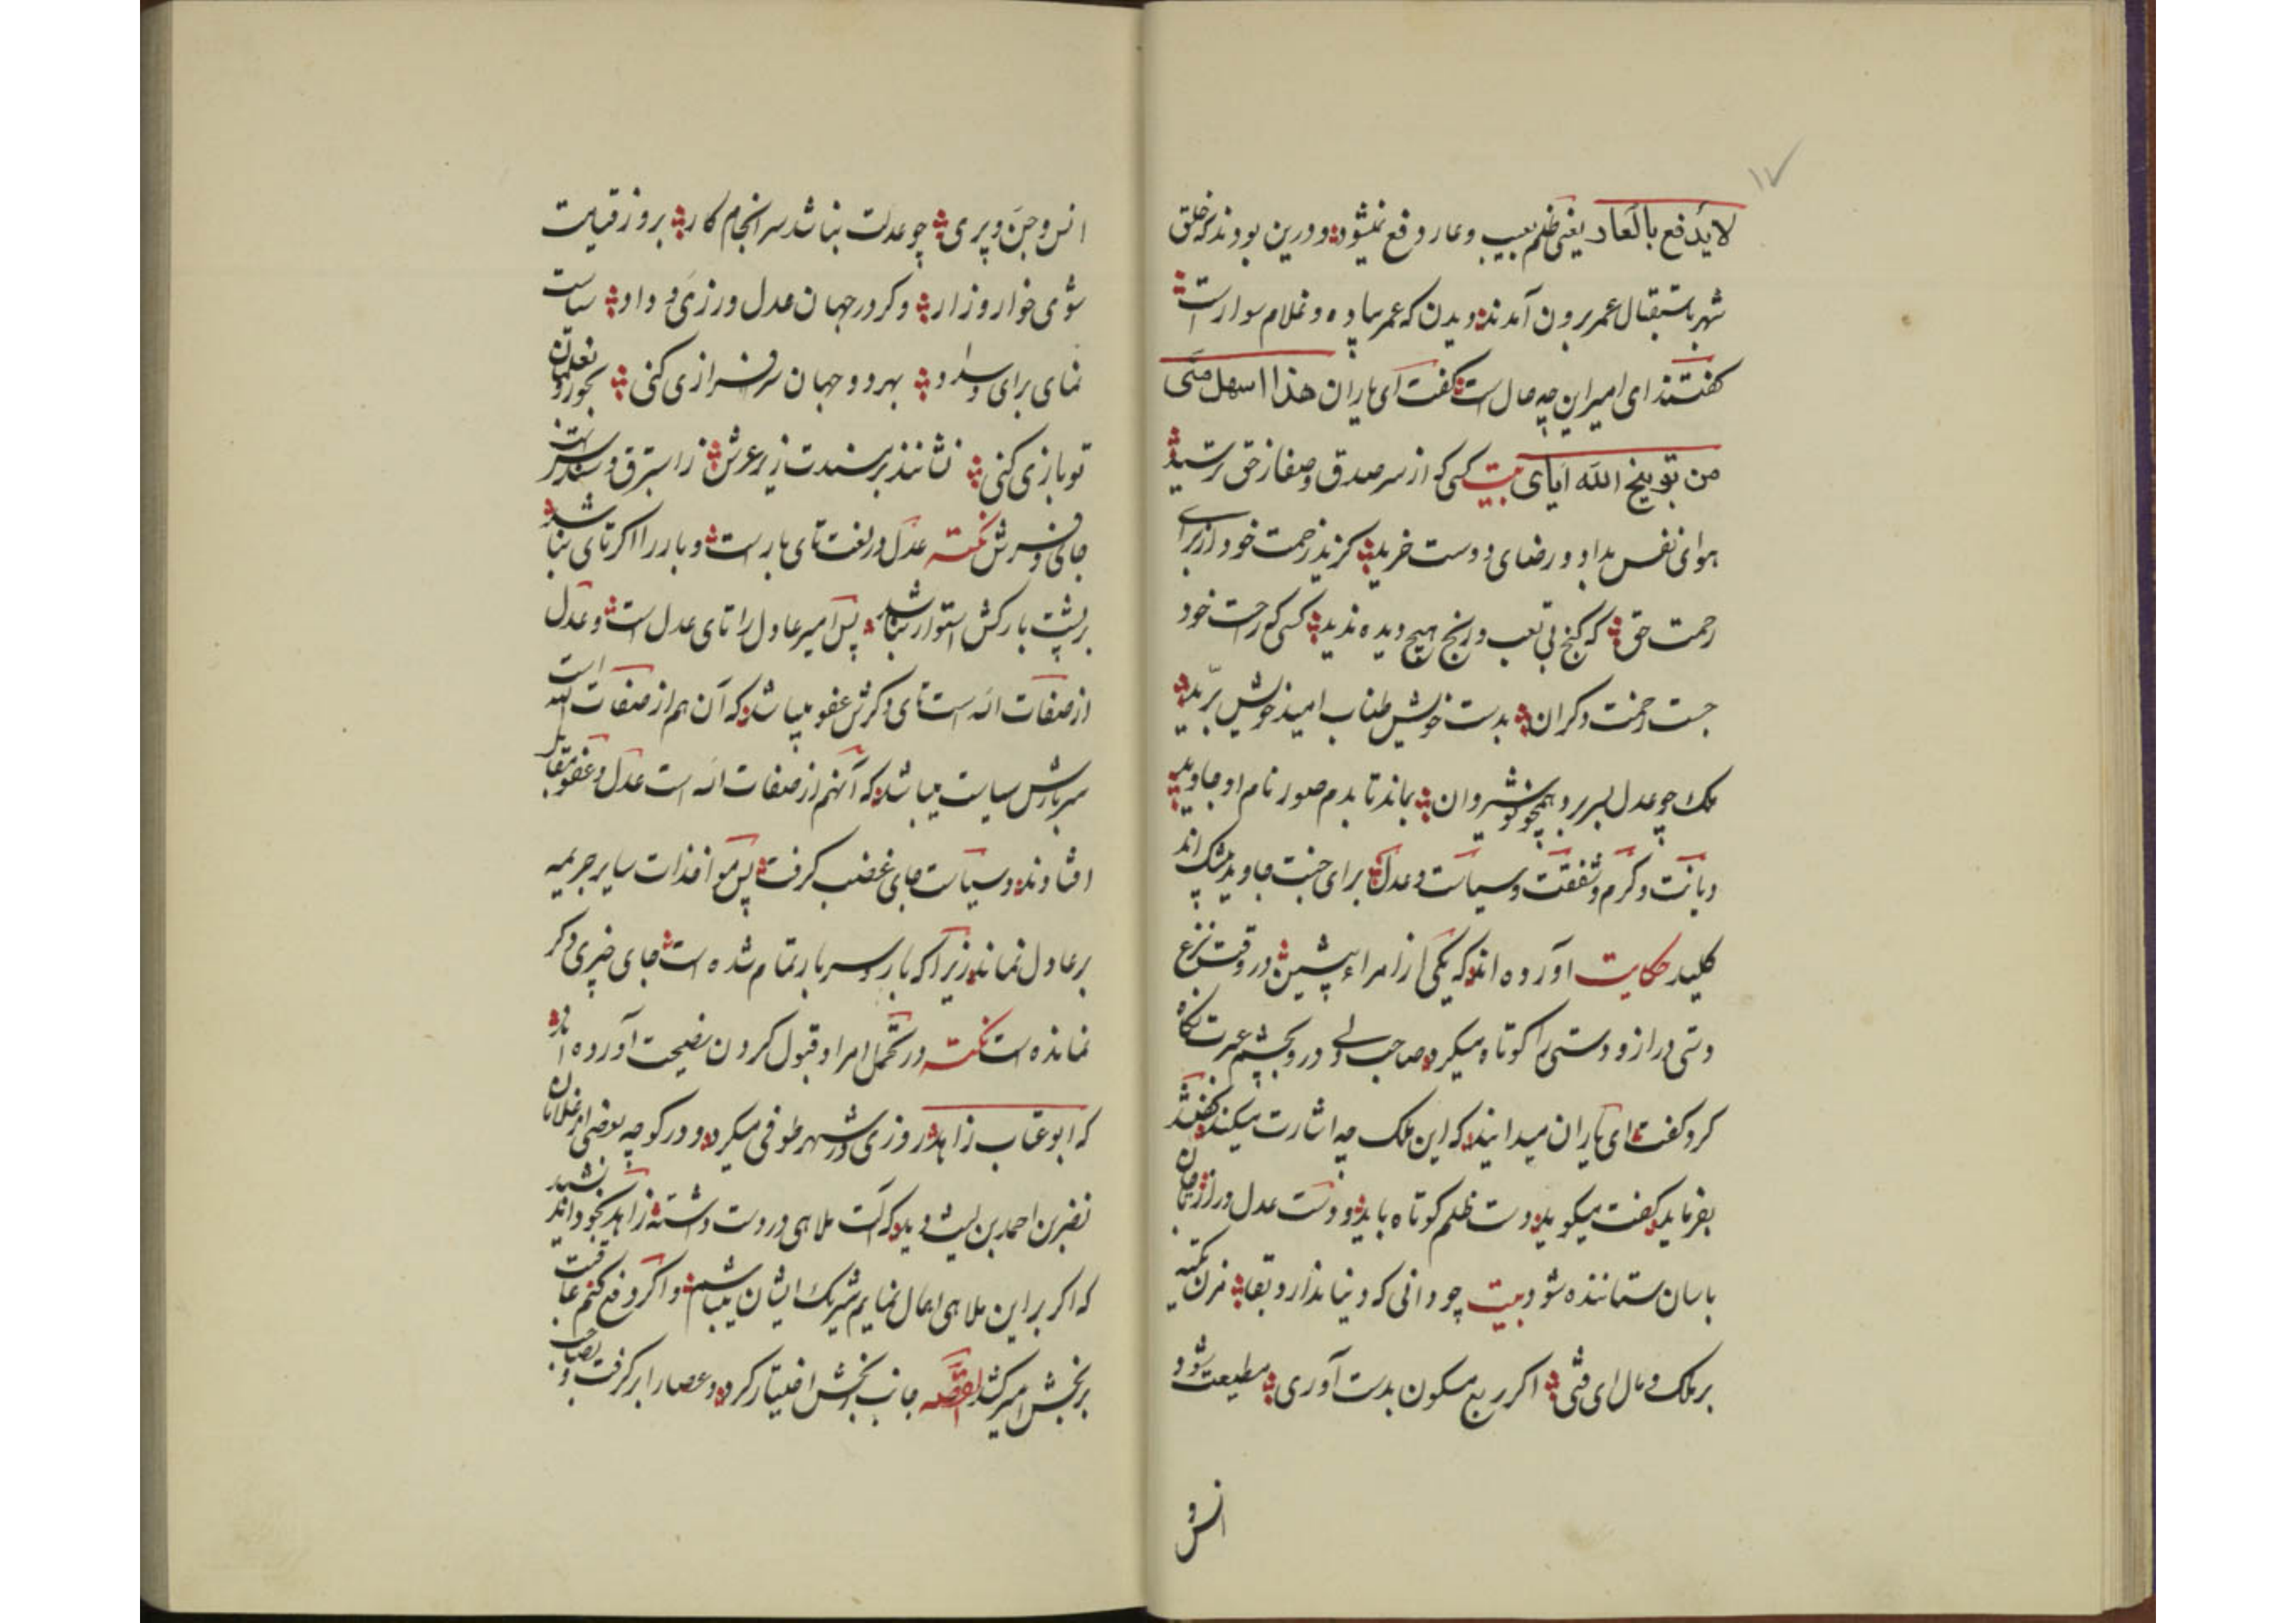 ۱۷
لایدفع بالعار یعنی ظلم بعیب و عار دفع نمیشود و درین بودند که خلق
شهر باستقبال عمر برون آمدند دیدن که عمر پیاده و غلام سوارست
کفتند ای امیر این چه حال است کفت ای یاران هذا اسهل منّی
من توبیخ الله ایای بیت کسی که از سر صدق و صفا ز حق ترسید
هوای نفس بداد و رضای دوست خرید کزید زحمت خود از برای
رحمت حق که کنج بی تعب و رنج هیچ دیده ندید کسی که راحت خود
جست و زحمت دکران بدست خویش طناب امید خویش برّید
ملک چو عدل بسر برد همچو نوشیروان بماند تا بدم صور نام او جاوید
دیانت و کرم و شفقت و سیاست و عدل برای جنت جاوید بیشک اند
کلید حکایت آورده اند که یکی از امراء پیشین در وقت نزع
دستی دراز و دستی را کوتاه میکرد صاحب دلی درو بچشم عبرت نکاه
کرد کفت ای یاران میدانید که این ملک چه اشارت میکند کفتند
بفرماید کفت میکوید دست ظلم کوتاه باید و دست عدل دراز
باسان ستاننده شود بیت چو دانی که دنیا ندارد بقا مزن تکیه
بر ملک و مال ای فتی اکر ربع مسکون بدست آوری مطیعت شود
انس و
انس و جن و پری چو عدلت نباشد سرانجام کار بروز قیامت
شوی خوار و زار وکر در جهان عدل ورزی و داد سیاست
نمای برای سداد بهر دو جهان سرفرازی کنی
تو بازی کنی نشانند برسندت زیر عرش ز استبرق و سندس
جای و فرش نکته عدل در لغت تای بارست و بار را اکر تای نباشد
بر پشت بارکش استوار نباشد پس امیر عادل را تای عدل است و عدل
از صفات اله است تای دکرش عفو میباشد که آن هم از صفات
سربارش سیاست میباشد که آنهم از صفات اله است عدل و عفو
افتادند و سیاست جای غضب کرفت پس مواخذات سایر جریمه
بر عادل نماند زیرا که بار و سربار تمام شده است جای چیزی دکر
نمانده است نکته در تحمل امرا و قبول کردن نصیحت آورده اند
که ابو عتاب زاهد روزی در شهر طوفی میکرد و در کوچه بعضی از غلامان
نصر بن احمد بن لیث دید که آلت ملاهی در دست داشته زاهد بخود اندیشید
که اکر بر این ملاهی اهمال نمایم شریک ایشان میباشم و اکر دفع کنم عاقبت
برنجش امیر کشد القصه جانب رنجش اختیار کرد و عصا را بر کرفت